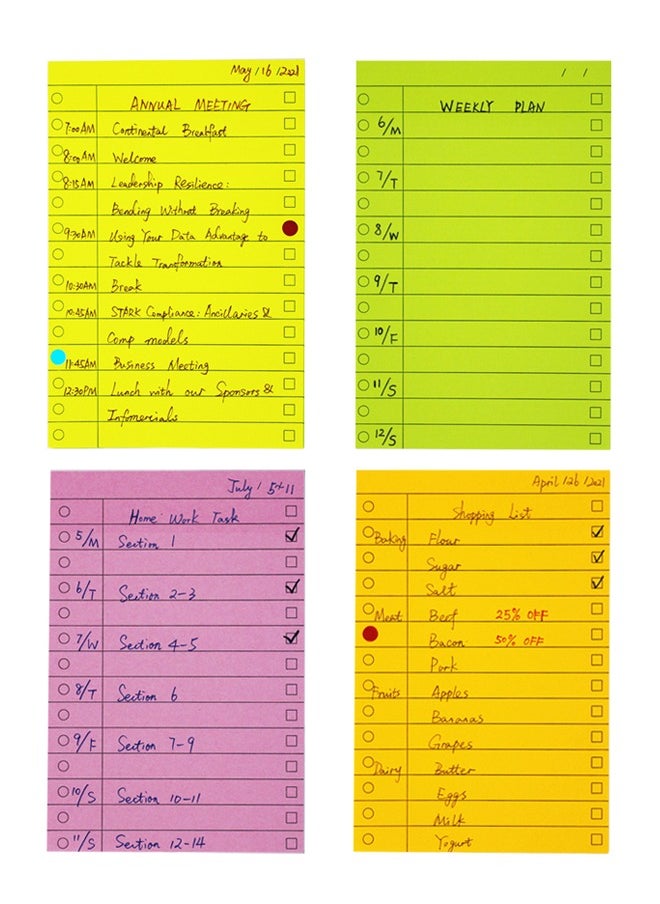 May / 16 / 2021
ANNUAL MEETING
7:00AM Continental Breakfast
8:00AM Welcome
8:15AM Leadership Resilience:
Bending Without Breaking
9:30AM Using Your Data Advantage to
Tackle Transformation
10:30AM Break
10:45AM STARK Compliance: Ancillaries &
Comp models
11:45AM Business Meeting
12:30PM Lunch with our Sponsors &
Infomercials
/ /
WEEKLY PLAN
6/M
7/T
8/W
9/T
10/F
11/S
12/S
July / 5→11
Home Work Task
5/M Section 1
6/T Section 2-3
7/W Section 4-5
8/T Section 6
9/F Section 7-9
10/S Section 10-11
11/S Section 12-14
April / 26 / 2021
Shopping List
Baking Flour
Sugar
Salt
Meat Beef 25% OFF
Bacon 50% OFF
Pork
Fruits Apples
Bananas
Grapes
Dairy Butter
Eggs
Milk
Yogurt